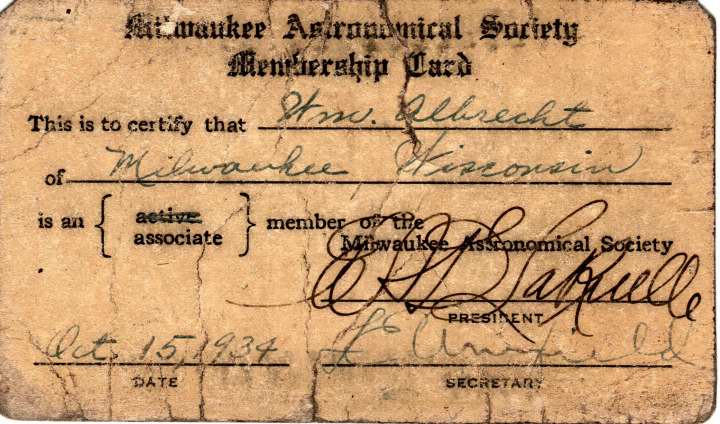 Milwaukee Astronomical Society
Membership Card
This is to certify that Wm. Albrecht
of Milwaukee Wisconsin
is an { active associate } member of the
Milwaukee Astronomical Society
PRESIDENT
Oct. 15, 1934
DATE SECRETARY